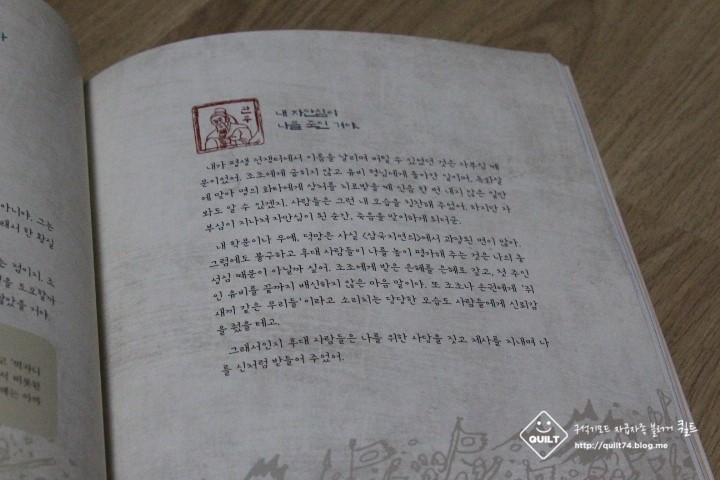 관우
내 자만심이
나를 죽인 거야.
내가 평생 전쟁터에서 이름을 날리며 버틸 수 있었던 것은 자부심 때
문이었어. 조조에게 굴하지 않고 유비 형님에게 돌아간 일이며, 독화살
에 맞아 명의 화타에게 상처를 치료받을 때 신음 한 번 내지 않은 일만
봐도 알 수 있겠지. 사람들은 그런 내 모습을 칭찬해 주었어. 하지만 자
부심이 지나쳐 자만심이 된 순간, 죽음을 맞이하게 되더군.
내 학문이나 무예, 덕망은 사실 <삼국지연의>에서 과장된 면이 많아.
그럼에도 불구하고 후대 사람들이 나를 높이 평가해 주는 것은 나의 충
성심 때문이 아닐까 싶어. 조조에게 받은 은혜를 은혜로 갚고, 전 주인
인 유비를 끝까지 배신하지 않은 마음 말이야. 또 조조나 손권에게 '쥐
새끼 같은 무리들'이라고 소리치는 당당한 모습도 사람들에게 신뢰감
을 줬을 테고.
그래서인지 후대 사람들은 나를 위한 사당을 짓고 제사를 지내며 나
를 신처럼 받들어 주었어.
아니야. 그는
래서 한 황실
는 정이지. 조
을 도모할까
았을 거야.
QUILT
구석기모드 자급자족 블로거 퀼트
http://quilt74.blog.me